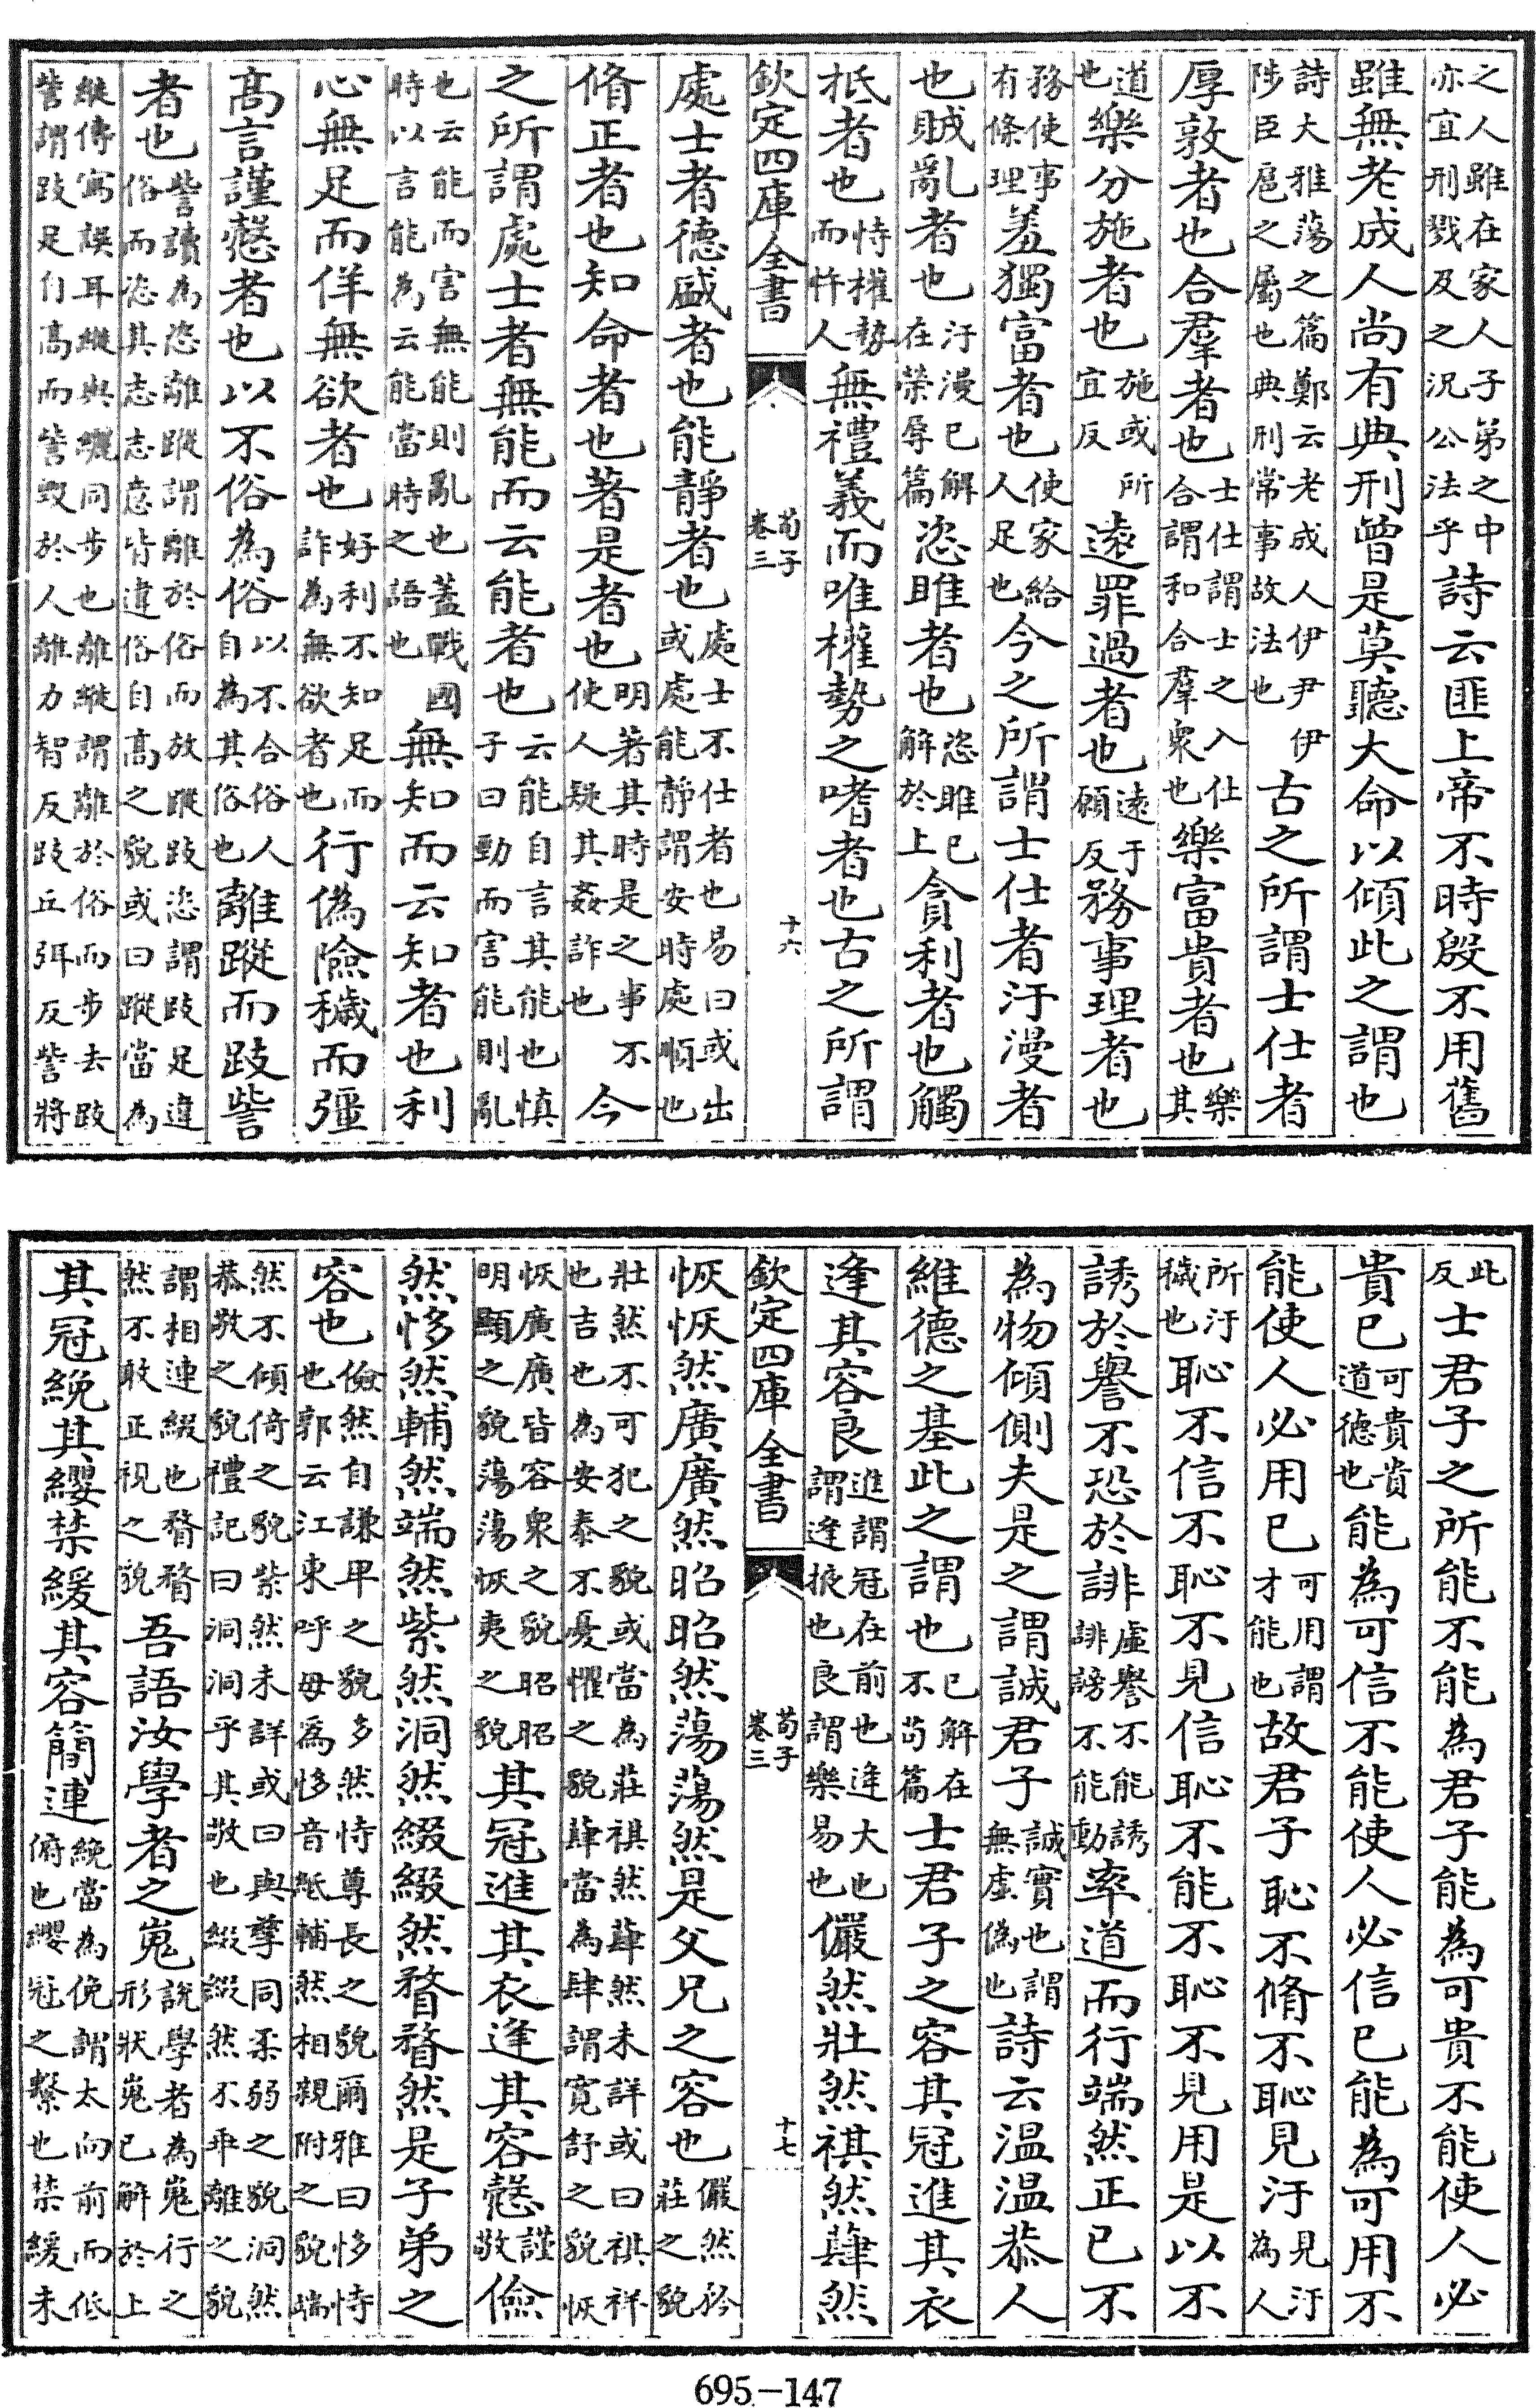 之人雖在家人子弟之中亦宜刑戮及之況公法乎詩云匪上帝不時殷不用舊
雖無老成人尚有典刑曾是莫聽大命以傾此之謂也
詩大雅蕩之篇鄭云老成人伊尹伊陟臣扈之屬也典刑常事故法也古之所謂士仕者
厚敦者也合羣者也士仕謂士之入仕合謂和合羣衆也樂富貴者也樂其
道也樂分施者也施或所宜反遠罪過者也遠于願反務事理者也
務使事有條理羞獨富者也使家給人足也今之所謂士仕者汙漫者
也賊亂者也汙漫已解在榮辱篇恣睢者也恣睢已解於上貪利者也觸
抵者也恃權勢而忤人無禮義而唯權勢之嗜者也古之所謂
欽定四庫全書 荀子卷三 十六
處士者德盛者也能靜者也處士不仕者也易曰或出或處能靜謂安時處順也
脩正者也知命者也著是者也明著其時是之事不使人疑其姦詐也今
之所謂處士者無能而云能者也云能自言其能也慎子曰勁而害能則亂
也云能而害無能則亂也蓋戰國時以言能為云能當時之語也無知而云知者也利
心無足而佯無欲者也好利不知足而詐為無欲者也行偽險穢而彊
高言謹愨者也以不俗為俗以不合俗人自為其俗也離蹤而跂訾
者也訾讀為恣離蹤謂離於俗而放蹤跂恣謂跂足違俗而恣其志志意皆違俗自高之貌或曰蹤當為
縰傳寫誤耳縰與纚同步也離縰謂離於俗而步去跂訾謂跂足自高而訾毀於人離力智反跂丘弭反訾將
此反士君子之所能不能為君子能為可貴不能使人必
貴已可貴貴道德也能為可信不能使人必信已能為可用不
能使人必用已可用謂才能也故君子恥不脩不恥見汙見汙為人
所汙穢也恥不信不恥不見信恥不能不恥不見用是以不
誘於譽不恐於誹虛譽不能誘誹謗不能動率道而行端然正已不
為物傾側夫是之謂誠君子誠實也謂無虛偽也詩云温温恭人
維德之基此之謂也已解在不茍篇士君子之容其冠進其衣
逢其容良進謂冠在前也逢大也謂逢掖也良謂樂易也儼然壯然祺然蕼然
欽定四庫全書 荀子卷三 十七
恢恢然廣廣然昭昭然蕩蕩然是父兄之容也儼然矜莊之貌
壯然不可犯之貌或當為莊祺然蕼然未詳或曰祺祥也吉也為安泰不憂懼之貌蕼當為肆謂寬舒之貌恢
恢廣廣皆容衆之貌昭昭明顯之貌蕩蕩恢夷之貌其冠進其衣逢其容愨謹敬儉
然恀然輔然端然紫然洞然綴綴然瞀瞀然是子弟之
容也儉然自謙卑之貌多然恃尊長之貌爾雅曰恀恃也郭云江東呼母為恀音紙輔然相親附之貌端
然不傾倚之貌紫然未詳或曰與孳同柔弱之貌洞然恭敬之貌禮記曰洞洞乎其敬也綴綴然不乖離之貌
謂相連綴也瞀瞀然不敢正視之貌吾語汝學者之嵬說學者為嵬行之形狀嵬已解於上
其冠絻其纓禁緩其容簡連絻當為俛謂太向前而低俯也纓冠之繫也禁緩未
695-147